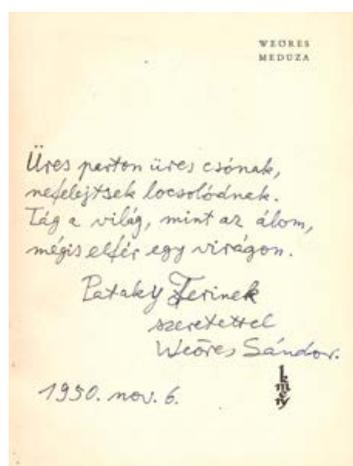 WEÖRES
MEDUZA
Üres parton üres csónak,
nefelejtsek locsolódnak.
Tág a világ, mint az álom,
mégis elfér egy virágon.
Pataky Ferinek
szeretettel
Weöres Sándor.
1950. nov. 6.